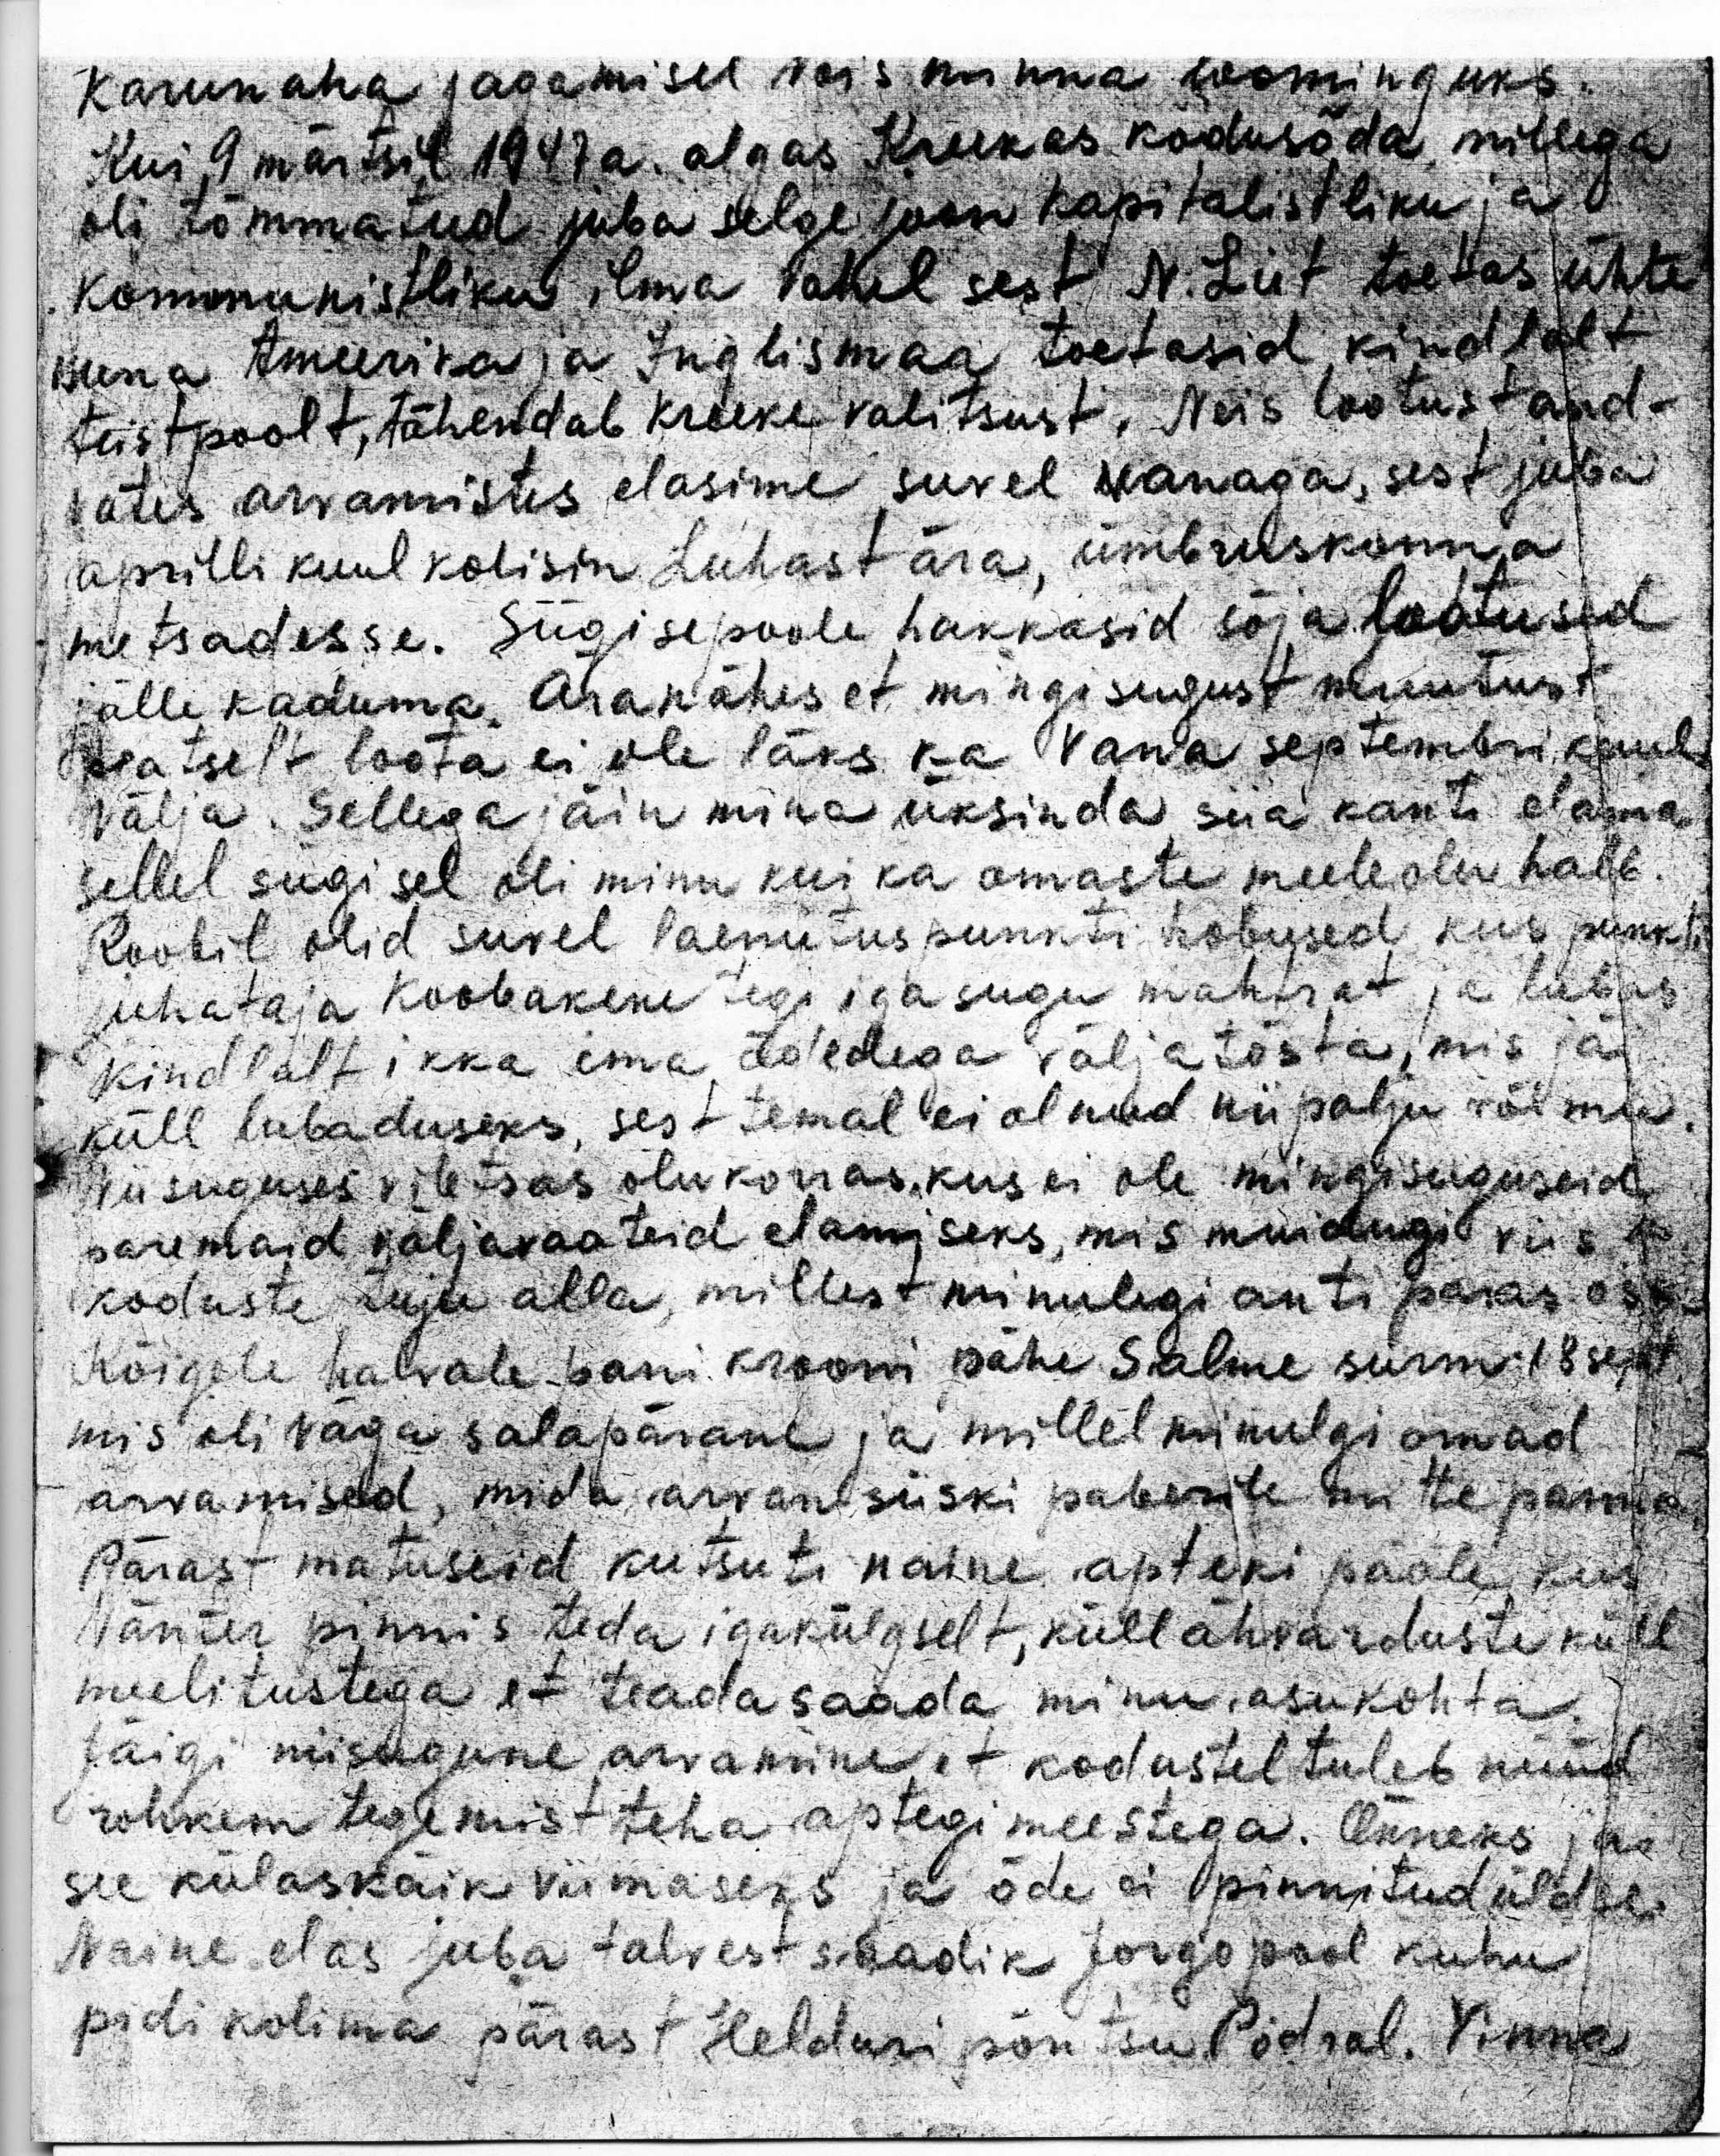 Karunaha jagamisel võis minna loominguks.
Kui 9 märtsil 1947a. algas Kreekas kodusõda, millega
oli tõmmatud juba selge joon kapitalistliku ja
kommunistliku ilma vahel sest N.Liit toetas ühte
kuna Ameerika ja Inglismaa toetasid kindlalt
teistpoolt, tähendab Kreeke valitsust. Neis lootustand-
vates arvamistes elasime suvel vanaga, sest juba
aprilli kuul kolisin Luhast ära, ümbruskonna
metsadesse. Sügisepoole hakkasid sõja lootused
jälle kaduma. Äranähes et mingisugust muutust
peatselt loota ei ole läks ka Vana septembri kuul
välja. Sellega jäin mina üksinda siia kanti elama
sellel sügisel oli minu kui ka omaste meeleolu halb.
Roobil olid suvel laenutuspunkti hobused kus punkti
juhataja Koobakene tegi igasugu mahhrat ja lubas
kindlalt ikka ema õdedega välja tõsta, mis jäi
küll lubaduseks, sest temal ei olnud niipalju võimu.
Niisuguses viletsas olukorras, kus ei ole mingisuguseid
paremaid väljavaateid elamiseks, mis muidugi viis
koduste tuju alla, millest minulegi anti paras osa
Kõigele halvale pani krooni pähe Salme surm 18 sept.
mis oli väga salapärane ja millel minulgi omad
arvamised, mida arvan siiski paberile mitte panna
Pärast matuseid kutsuti naine apteki pääle, kus
Vänter pinnis teda igakülgselt, küll ähvarduste küll
meelitustega et teada saada minu asukohta.
Jäigi niisugune arvamine et kodustel tuleb nüüd
rohkem tegemist teha aptegi meestega. Õnneks jäi
see külaskäik viimaseks ja õde ei pinnitud üldse.
Naine elas juba talvest saadik Jorgopool kuhu
pidi kolima pärast Helduri põntsu Põdral. Vinna